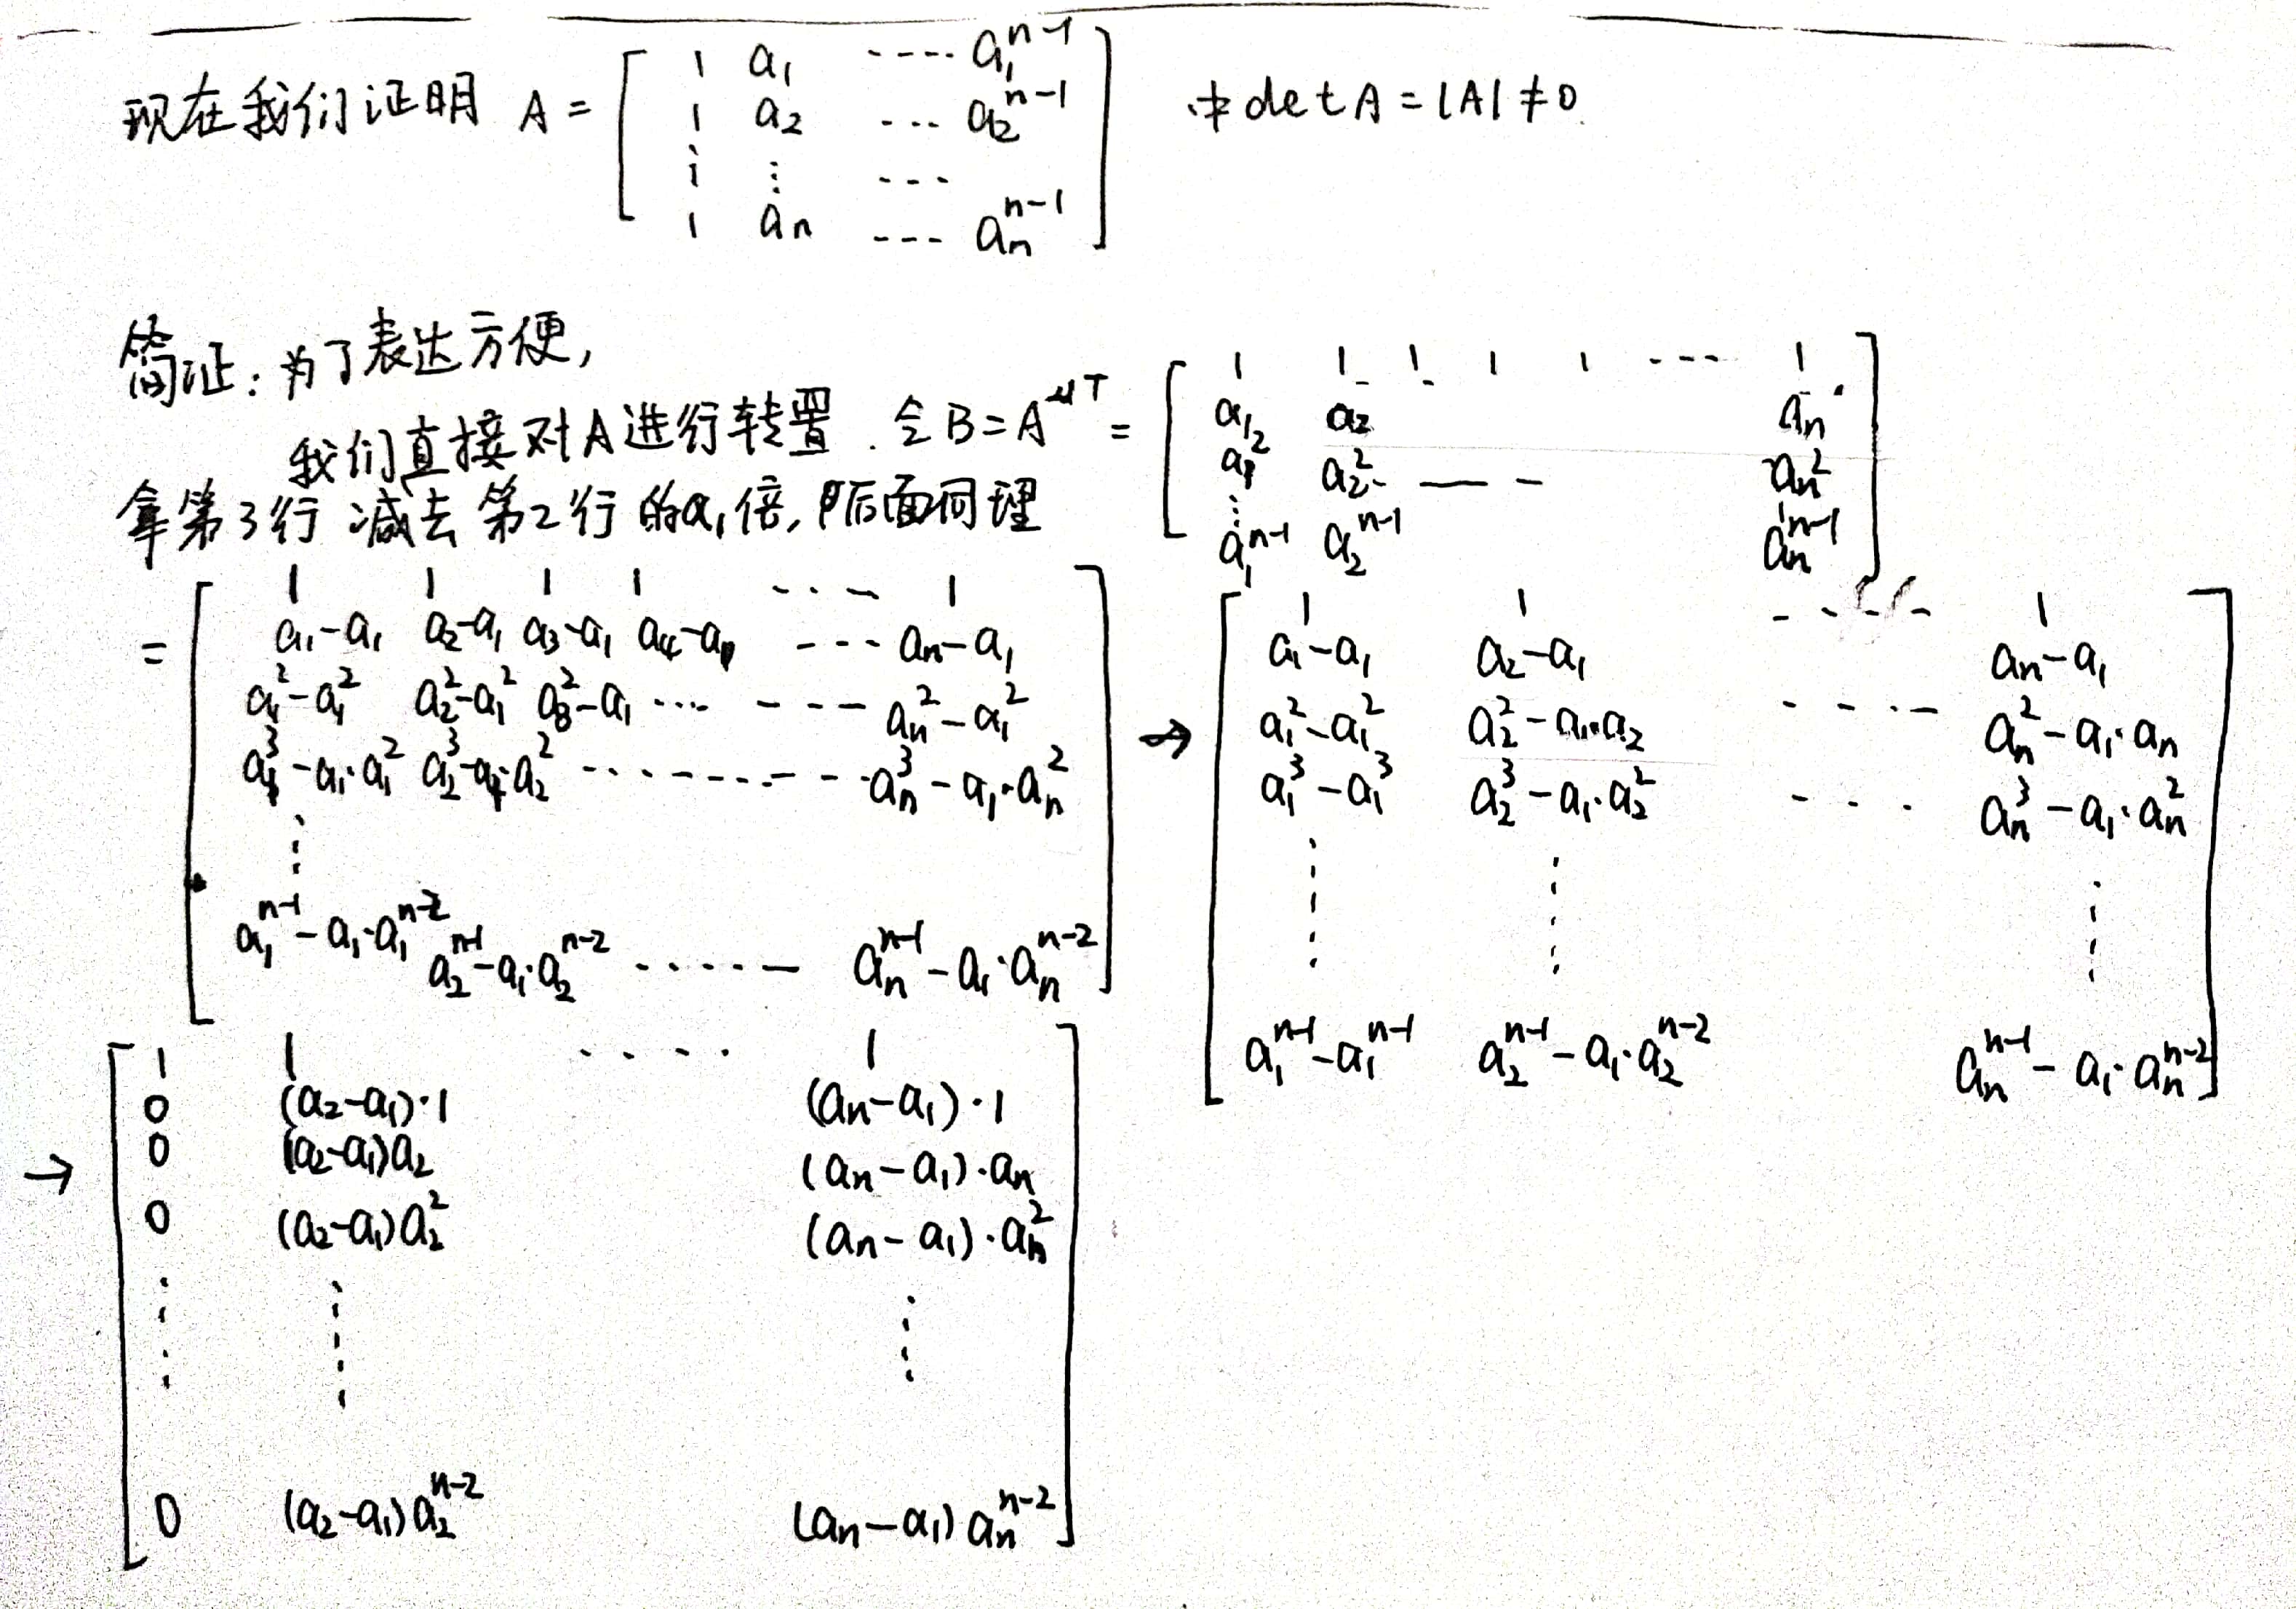 现在我们证明 A = [ 1 a₁ ···· a₁ⁿ⁻¹ ; 1 a₂ ··· a₂ⁿ⁻¹ ; ⋮ ⋮ --- ; 1 aₙ --- aₙⁿ⁻¹ ] 求 det A = |A| ≠ 0.
简证: 为了表达方便,
我们直接对A进行转置. 令 B = Aᵀ = [ 1 1 1 1 1 ··· 1 ; a₁ a₂ aₙ ; a₁² a₂² — - aₙ² ; ⋮ ; a₁ⁿ⁻¹ a₂ⁿ⁻¹ aₙⁿ⁻¹ ]
拿第3行 减去 第2行 的a₁倍, 后面同理
= [ 1 1 1 1 ··- 1 ; a₁-a₁ a₂-a₁ a₃-a₁ a₄-a₁ --- aₙ-a₁ ; a₁²-a₁² a₂²-a₁² a₃²-a₁ ··· --- aₙ²-a₁² ; a₁³-a₁·a₁² a₂³-a₁·a₂² ······ aₙ³-a₁·aₙ² ; ⋮ ; a₁ⁿ⁻¹-a₁·a₁ⁿ⁻² a₂ⁿ⁻¹-a₁·a₂ⁿ⁻² ······ aₙⁿ⁻¹-a₁·aₙⁿ⁻² ]
→ [ 1 1 ---- 1 ; a₁-a₁ a₂-a₁ aₙ-a₁ ; a₁²-a₁² a₂²-a₁·a₂ ---- aₙ²-a₁·aₙ ; a₁³-a₁³ a₂³-a₁·a₂² ··· aₙ³-a₁·aₙ² ; ⋮ ⋮ ⋮ ; a₁ⁿ⁻¹-a₁ⁿ⁻¹ a₂ⁿ⁻¹-a₁·a₂ⁿ⁻² aₙⁿ⁻¹-a₁·aₙⁿ⁻² ]
→ [ 1 1 ···· 1 ; 0 (a₂-a₁)·1 (aₙ-a₁)·1 ; 0 (a₂-a₁)a₂ (aₙ-a₁)·aₙ ; 0 (a₂-a₁)a₂² (aₙ-a₁)·aₙ² ; ⋮ ⋮ ⋮ ; 0 (a₂-a₁)a₂ⁿ⁻² (aₙ-a₁)aₙⁿ⁻² ]